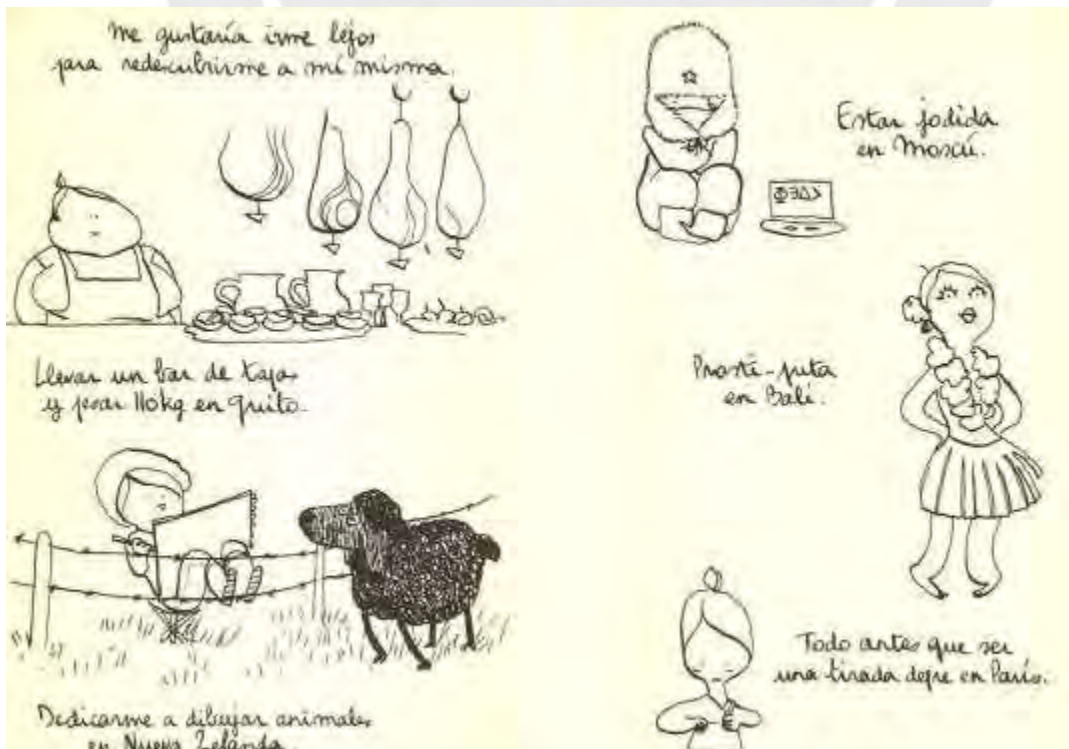 Me gustaría irme lejos
para redescubrirme a mí misma.
Llevar un bar de tapas
y pesar 110kg en Quito.
Dedicarme a dibujar animales
en Nueva Zelanda.
Estar jodida
en Moscú.
ФЭДХ
Prosti-puta
en Bali.
Todo antes que ser
una tirada depre en París.